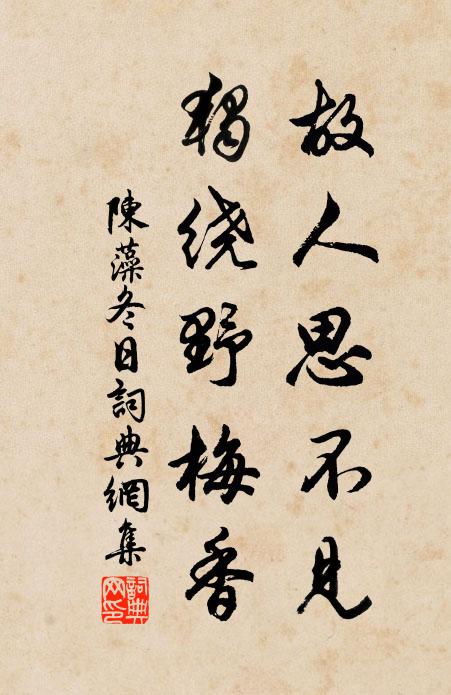 故人思不見
獨绕野梅香
陳藻冬日詞典網集
詞典网印